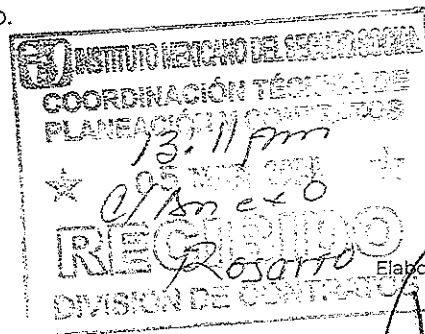 o.
INSTITUTO MEXICANO DEL SEGURO SOCIAL
COORDINACIÓN TÉCNICA DE
PLANEACIÓN Y CONTRATOS
13:11 pm
05
C/Anexo
RECIBIDO
Rosario
Elabo
DIVISIÓN DE CONTRATOS